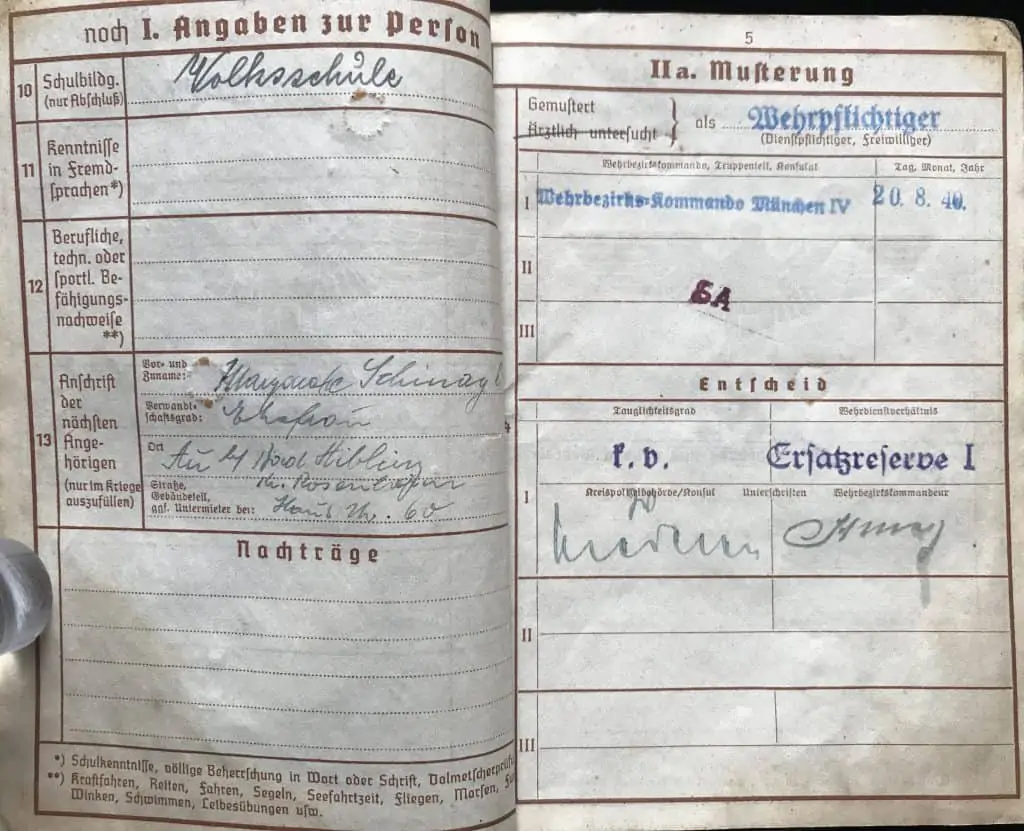 noch I. Angaben zur Person
10
Schulbildg.
(nur Abschluß)
Volksschule
11
Kenntnisse
in Fremd-
sprachen*)
12
Berufliche,
techn. oder
sportl. Be-
fähigungs-
nachweise
**)
13
Anschrift
der
nächsten
Ange-
hörigen
(nur im Kriege
auszufüllen)
Vor- und
Zuname:
Schinagl
Verwandt-
schaftsgrad:
Ehefrau
Ort
Au b/ Bad Aibling
Kr. Rosenheim
Straße,
Gebäudeteil,
ggf. Untermieter bei:
Haus Nr. 60
Nachträge
*) Schulkenntnisse, völlige Beherrschung in Wort oder Schrift,
**) Kraftfahren, Reiten, Fahren, Segeln, Seefahrtzeit, Fliegen, Morsen,
Winken, Schwimmen, Leibesübungen usw.
5
IIa. Musterung
Gemustert
Ärztlich untersucht
als Wehrpflichtiger
(Dienstpflichtiger, Freiwilliger)
Wehrbezirkskommando, Truppenteil, Konsulat
Tag, Monat, Jahr
I Wehrbezirks-Kommando München IV 20. 8. 40.
II
SA
III
Entscheid
Tauglichkeitsgrad
Wehrdienstverhältnis
I
k. v.
Ersatzreserve I
Kreispolizeibehörde/Konsul Unterschriften Wehrbezirkskommandeur
II
III